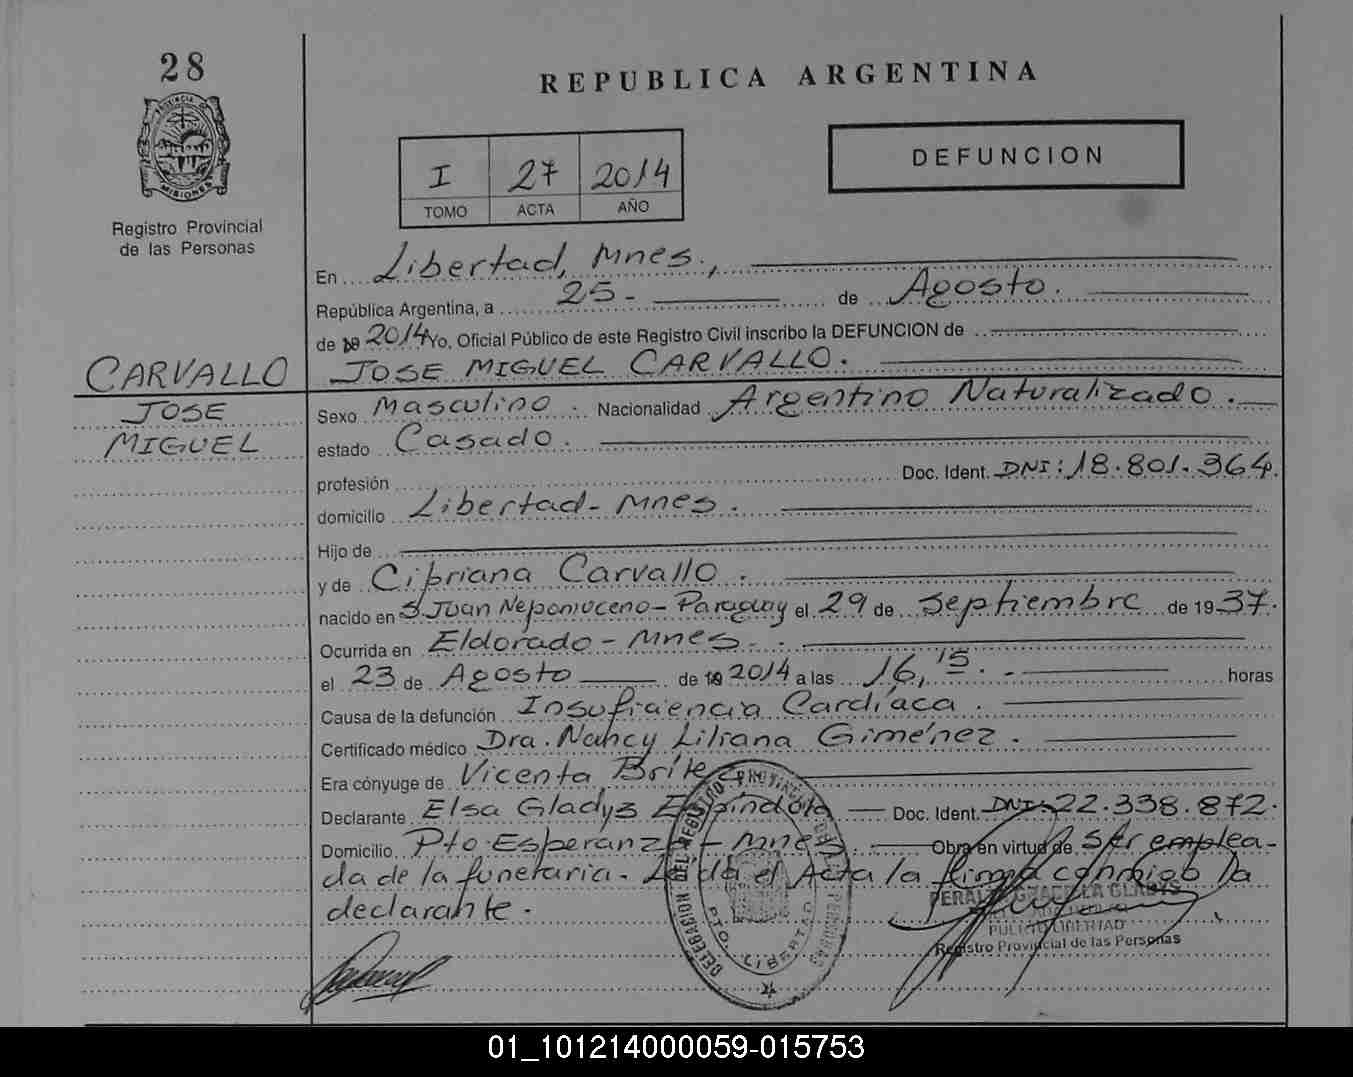 28
PROVINCIA DE
MISIONES
Registro Provincial
de las Personas
REPUBLICA ARGENTINA
I 27 2014
TOMO ACTA AÑO
DEFUNCION
En Libertad, Mnes.,
República Argentina, a 25- de Agosto.
de 19 2014 Yo, Oficial Público de este Registro Civil inscribo la DEFUNCION de
CARVALLO JOSE MIGUEL CARVALLO.
JOSE
MIGUEL
Sexo Masculino. Nacionalidad Argentino Naturalizado.
estado Casado.
profesión Doc. Ident. DNI: 18.801.364.
domicilio Libertad- Mnes.
Hijo de
y de Cipriana Carvallo.
nacido en S Juan Nepomuceno- Paraguay el 29 de Septiembre de 1937.
Ocurrida en Eldorado - Mnes.
el 23 de Agosto de 19 2014 a las 16,15. horas
Causa de la defunción Insuficiencia Cardíaca.
Certificado médico Dra. Nancy Liliana Giménez.
Era cónyuge de Vicenta Brite
Declarante Elsa Gladys Espíndola Doc. Ident. DNI: 22.338.872.
Domicilio Pto Esperanza - Mnes. Obra en virtud de ser emplea-
da de la funeraria. Leída el Acta la firma conmigo la
declarante.
DELEGACION DEL REGISTRO PROVINCIAL DE LAS PERSONAS
PTO. LIBERTAD
PERALTA GRACIELA GLADYS
PUERTO LIBERTAD
Registro Provincial de las Personas
01_101214000059-015753